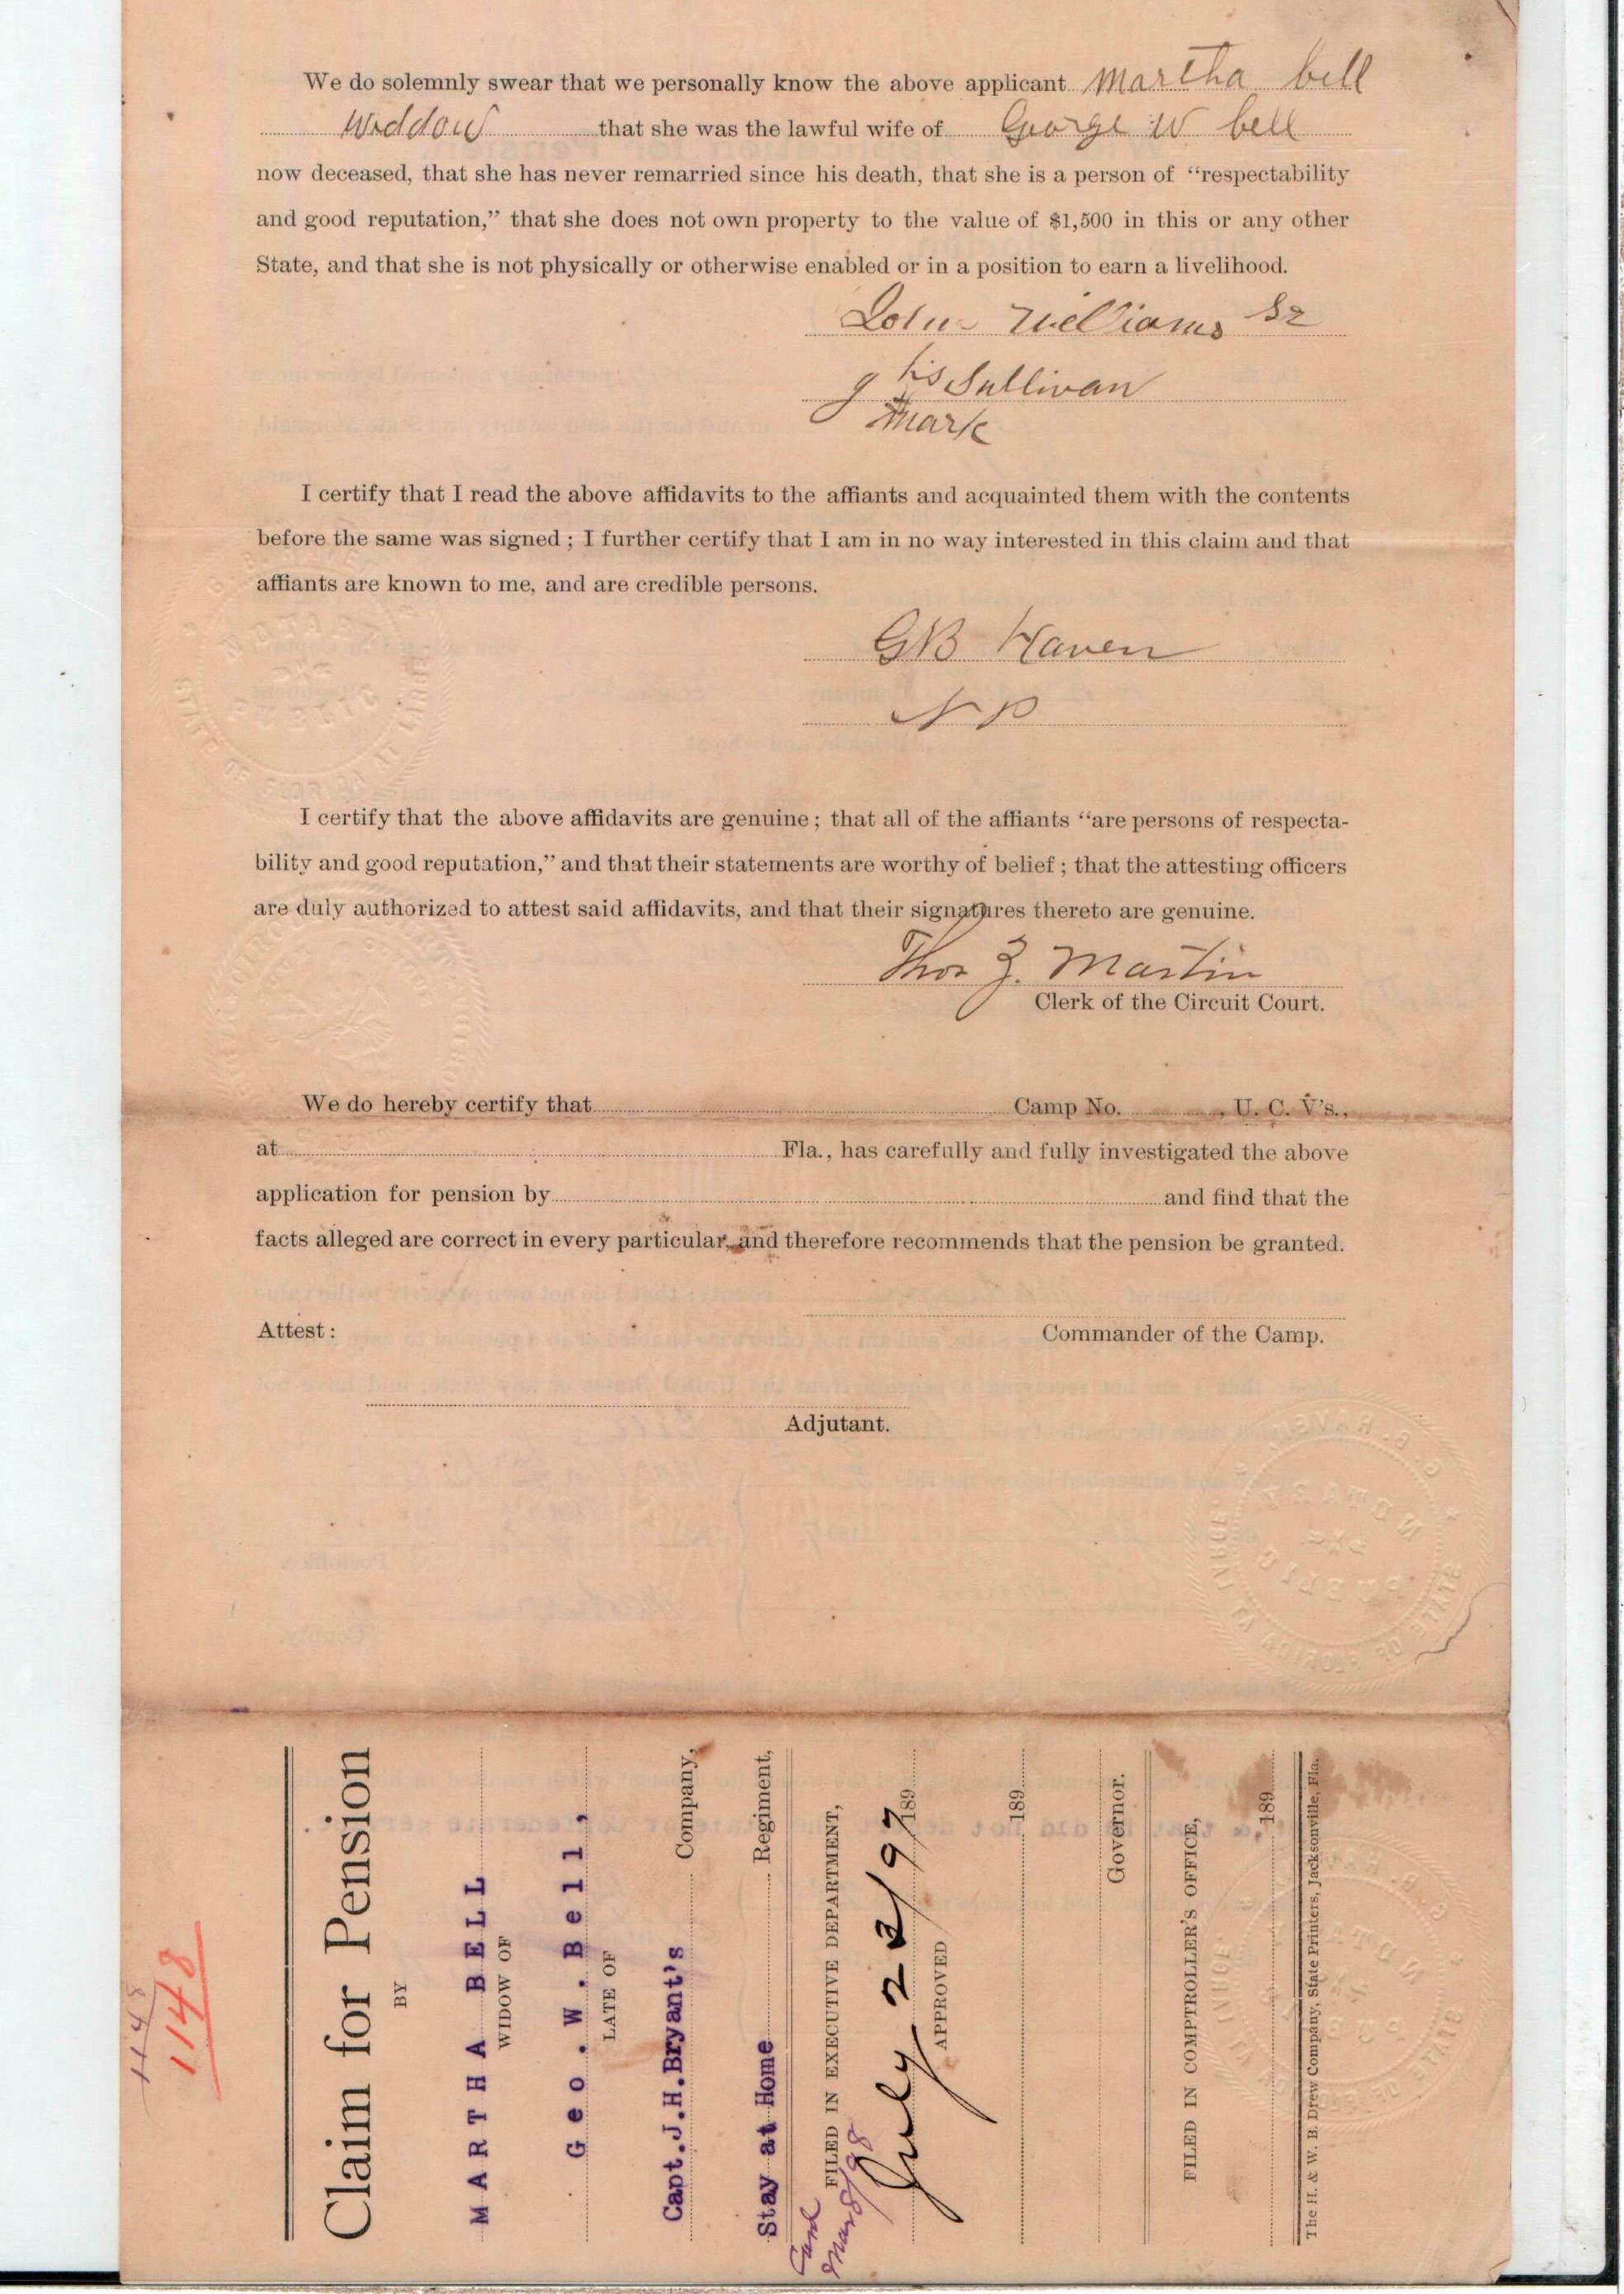 We do solemnly swear that we personally know the above applicant Martha bell
Widdow that she was the lawful wife of George W bell
now deceased, that she has never remarried since his death, that she is a person of “respectability
and good reputation,” that she does not own property to the value of $1,500 in this or any other
State, and that she is not physically or otherwise enabled or in a position to earn a livelihood.
John Williams Sr
J his Sullivan
mark
I certify that I read the above affidavits to the affiants and acquainted them with the contents
before the same was signed ; I further certify that I am in no way interested in this claim and that
affiants are known to me, and are credible persons.
GB Haven
N P
I certify that the above affidavits are genuine ; that all of the affiants “are persons of respecta-
bility and good reputation,” and that their statements are worthy of belief ; that the attesting officers
are duly authorized to attest said affidavits, and that their signatures thereto are genuine.
Thos Z. Martin
Clerk of the Circuit Court.
We do hereby certify that Camp No. , U. C. V’s.,
at Fla., has carefully and fully investigated the above
application for pension by and find that the
facts alleged are correct in every particular, and therefore recommends that the pension be granted.
Commander of the Camp.
Attest :
Adjutant.
1148
1148
Claim for Pension
BY
MARTHA BELL
WIDOW OF
Geo. W. Bell,
LATE OF
Capt. J. H. Bryant's Company,
Stay at Home Regiment,
FILED IN EXECUTIVE DEPARTMENT,
July 22/97 189
Card
Mar 8/98
APPROVED
189
Governor.
FILED IN COMPTROLLER’S OFFICE,
189
The H. & W. B. Drew Company, State Printers, Jacksonville, Fla.
G. B. HAVEN
NOTARY
PUBLIC
STATE OF FLORIDA AT LARGE